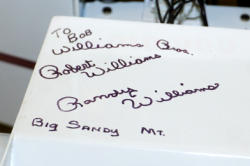 To Bob
Williams Bros.
Robert
Williams
Ramsty
Williams
Big Sandy Mt.